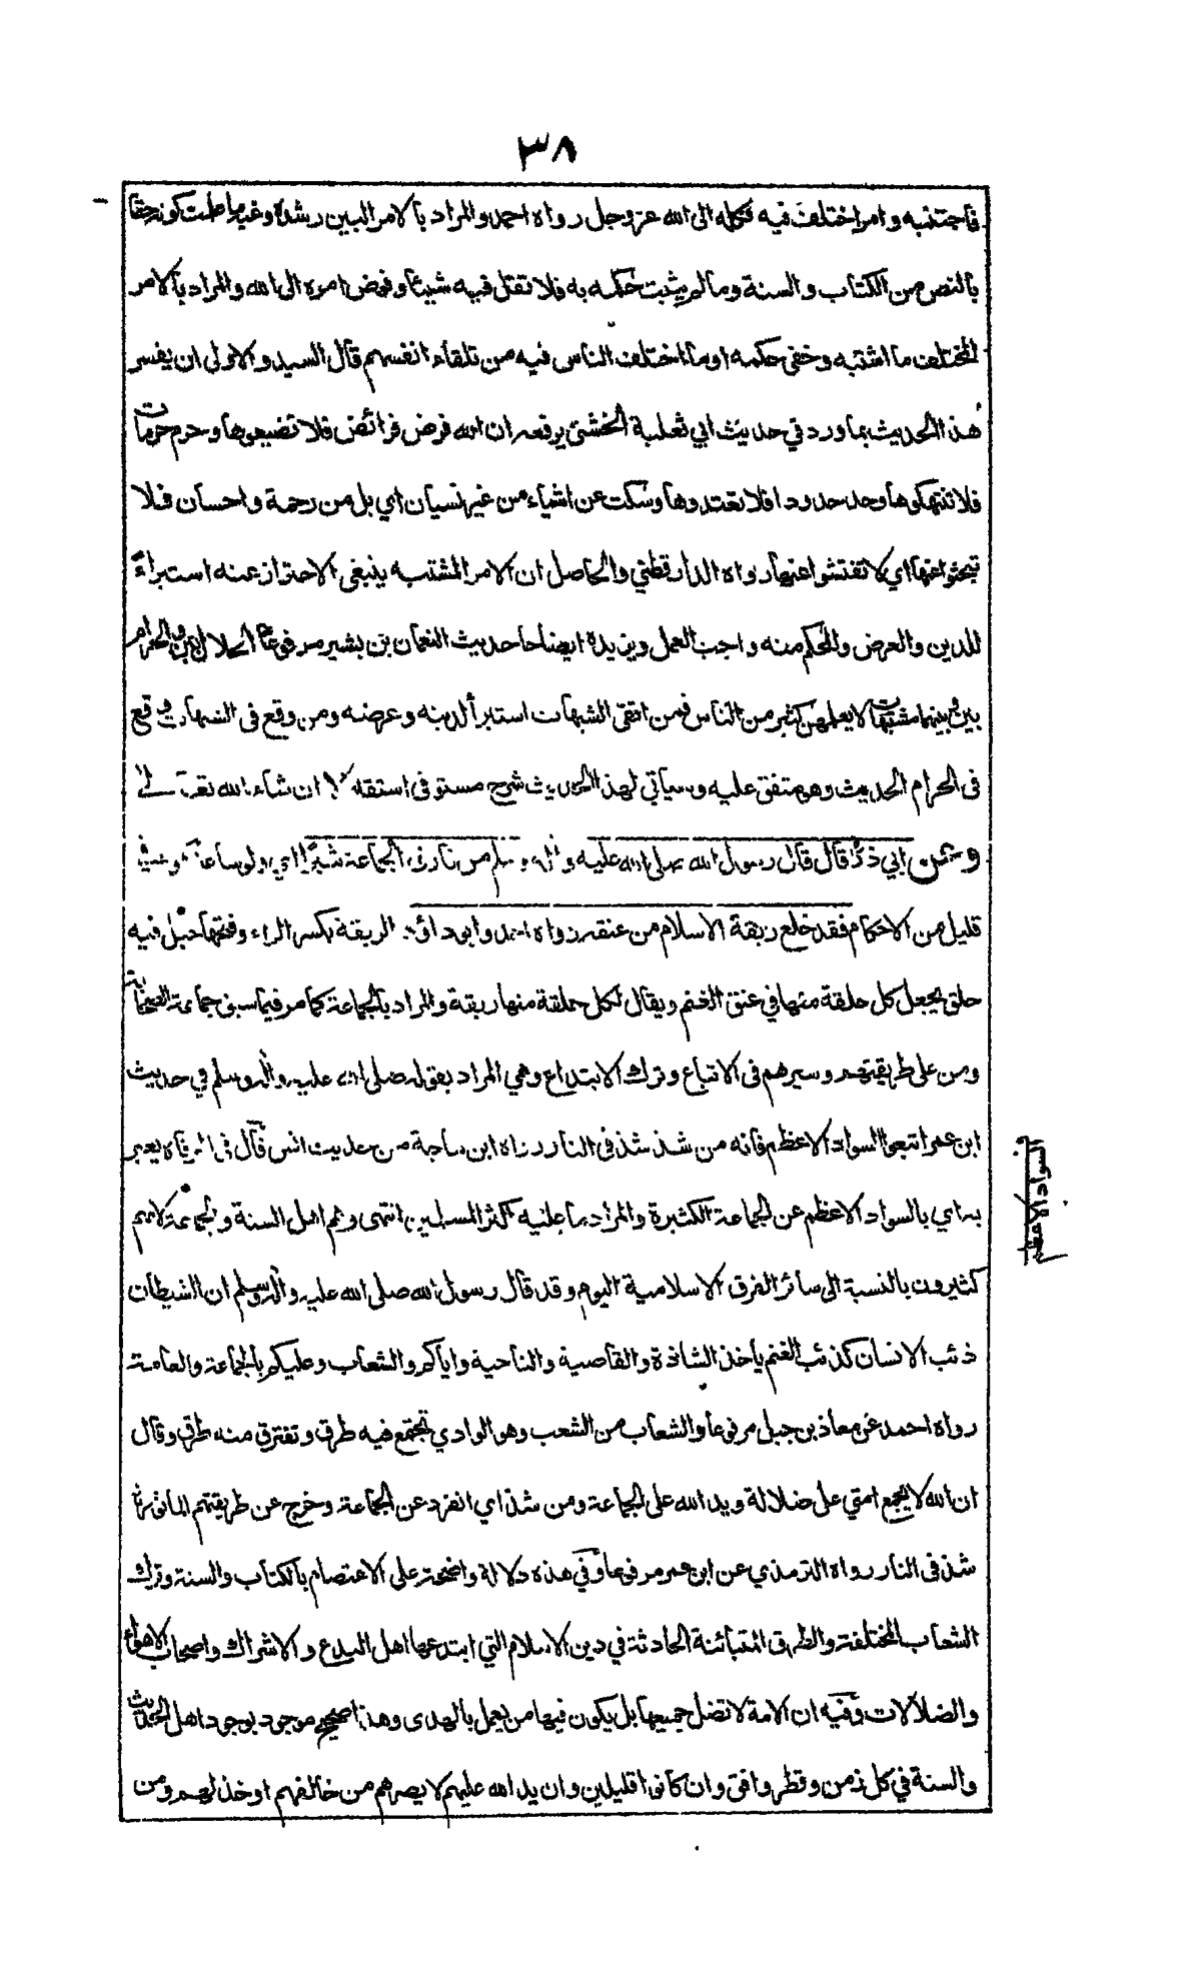 ٣٨
فاجتنبه وامر اختلف فيه فكله الى الله عزوجل رواه احمد والمراد بالامر البين رشده وغيه ما علمت كونه حقا
بالنص من الكتاب والسنة وما لم يثبت حكمه به فلا تقل فيه شيئا وفوض امره الى الله والمراد بالامر
المختلف ما اشتبه وخفي حكمه او ما اختلف الناس فيه من تلقاء انفسهم قال السيد والاولى ان يفسر
هذا الحديث بما ورد في حديث ابي ثعلبة الخشني يرفعه ان الله فرض فرائض فلا تضيعوها وحرم حرمات
فلا تنتهكوها وحد حدودا فلا تعتدوها وسكت عن اشياء من غير نسيان اي بل من رحمة واحسان فلا
تبحثوا عنها اي لا تفتشوا عنها رواه الدارقطني والحاصل ان الامر المشتبه ينبغي الاحتراز عنه استبراءً
للدين والعرض والمحكم منه واجب العمل ويزيده ايضاحا حديث النعمان بن بشير مرفوعا الحلال بين والحرام
بين وبينهما مشتبهات لا يعلمهن كثير من الناس فمن اتقى الشبهات استبرأ لدينه وعرضه ومن وقع في الشبهات وقع
في الحرام الحديث وهو متفق عليه وسيأتي لهذا الحديث شرح مستوفى ان شاء الله تعالى
وعن ابي ذر قال قال رسول الله صلى الله عليه وآله وسلم من فارق الجماعة شبرًا اي ولو ساعة وفي
قليل من الاحكام فقد خلع ربقة الاسلام من عنقه رواه احمد وابوداؤد الربقة بكسر الراء وفتحها حبل فيه
حلق يجعل كل حلقة منها في عنق الغنم ويقال لكل حلقة منها ربقة والمراد بالجماعة كما مر فيما سبق جماعة الصحابة
ومن على طريقتهم وسيرهم في الاتباع وترك الابتداع وهي المراد بقوله صلى الله عليه وآله وسلم في حديث
ابن عمر اتبعوا السواد الاعظم فانه من شذ شذ في النار رواه ابن ماجة من حديث انس قال في المرقاة يعبر
به اي بالسواد الاعظم عن الجماعة الكثيرة والمراد ما عليه اكثر المسلمين انتهى وهم اهل السنة والجماعة لانهم
كثيرون بالنسبة الى سائر الفرق الاسلامية اليوم وقد قال رسول الله صلى الله عليه وآله وسلم ان الشيطان
ذئب الانسان كذئب الغنم يأخذ الشاذة والقاصية والناحية واياكم والشعاب وعليكم بالجماعة والعامة
رواه احمد عن معاذ بن جبل مرفوعا والشعاب من الشعب وهو الوادي تجتمع فيه طرق وتفترق منه طرق وقال
ان الله لا يجمع امتي على ضلالة ويد الله على الجماعة ومن شذ اي انفرد عن الجماعة وخرج عن طريقتهم المأثورة
شذ في النار رواه الترمذي عن ابن عمر مرفوعا وفي هذه دلالة واضحة على الاعتصام بالكتاب والسنة وترك
الشعاب المختلفة والطرق المتبائنة الحادثة في دين الاسلام التي ابتدعها اهل البدع والاشراك واصحاب الاهواء
والضلالات وفيه ان الامة لا تضل جميعها بل يكون فيها من يعمل بالهدى وهذا صحيح موجود بوجود اهل الحديث
والسنة في كل زمن وقطر وافق وان كانوا قليلين وان يد الله عليهم لا يضرهم من خالفهم او خذلهم ومن